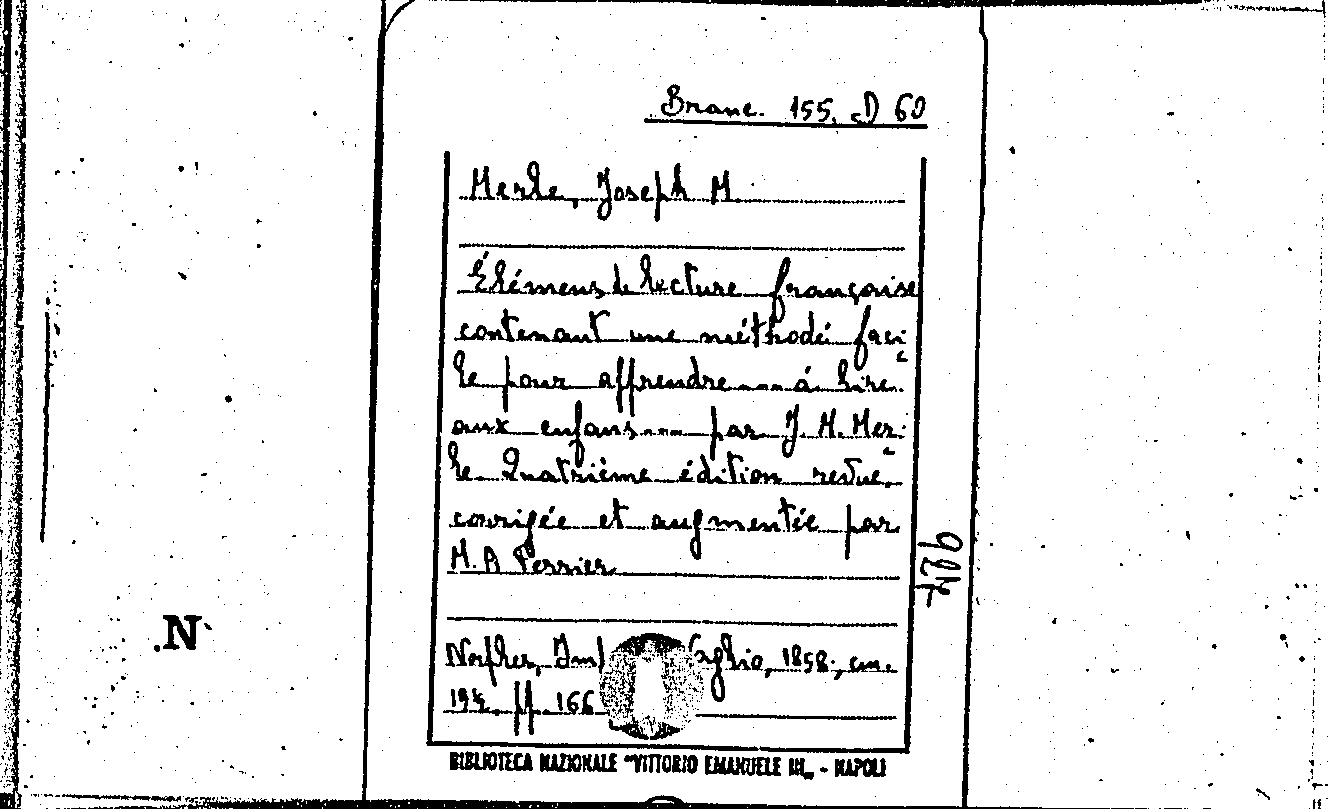 Branc. 155. D 60
Merle, Joseph M.
Élémens de lecture française
contenant une méthode faci-
le pour apprendre.... à lire
aux enfans.... par J. M. Mer-
le Quatrième édition revue,
corrigée et augmentée par
M. A Perrier
Naples, Imp 1858., cm.
pp. 166
BIBLIOTECA NAZIONALE "VITTORIO EMANUELE III„ - NAPOLI
N